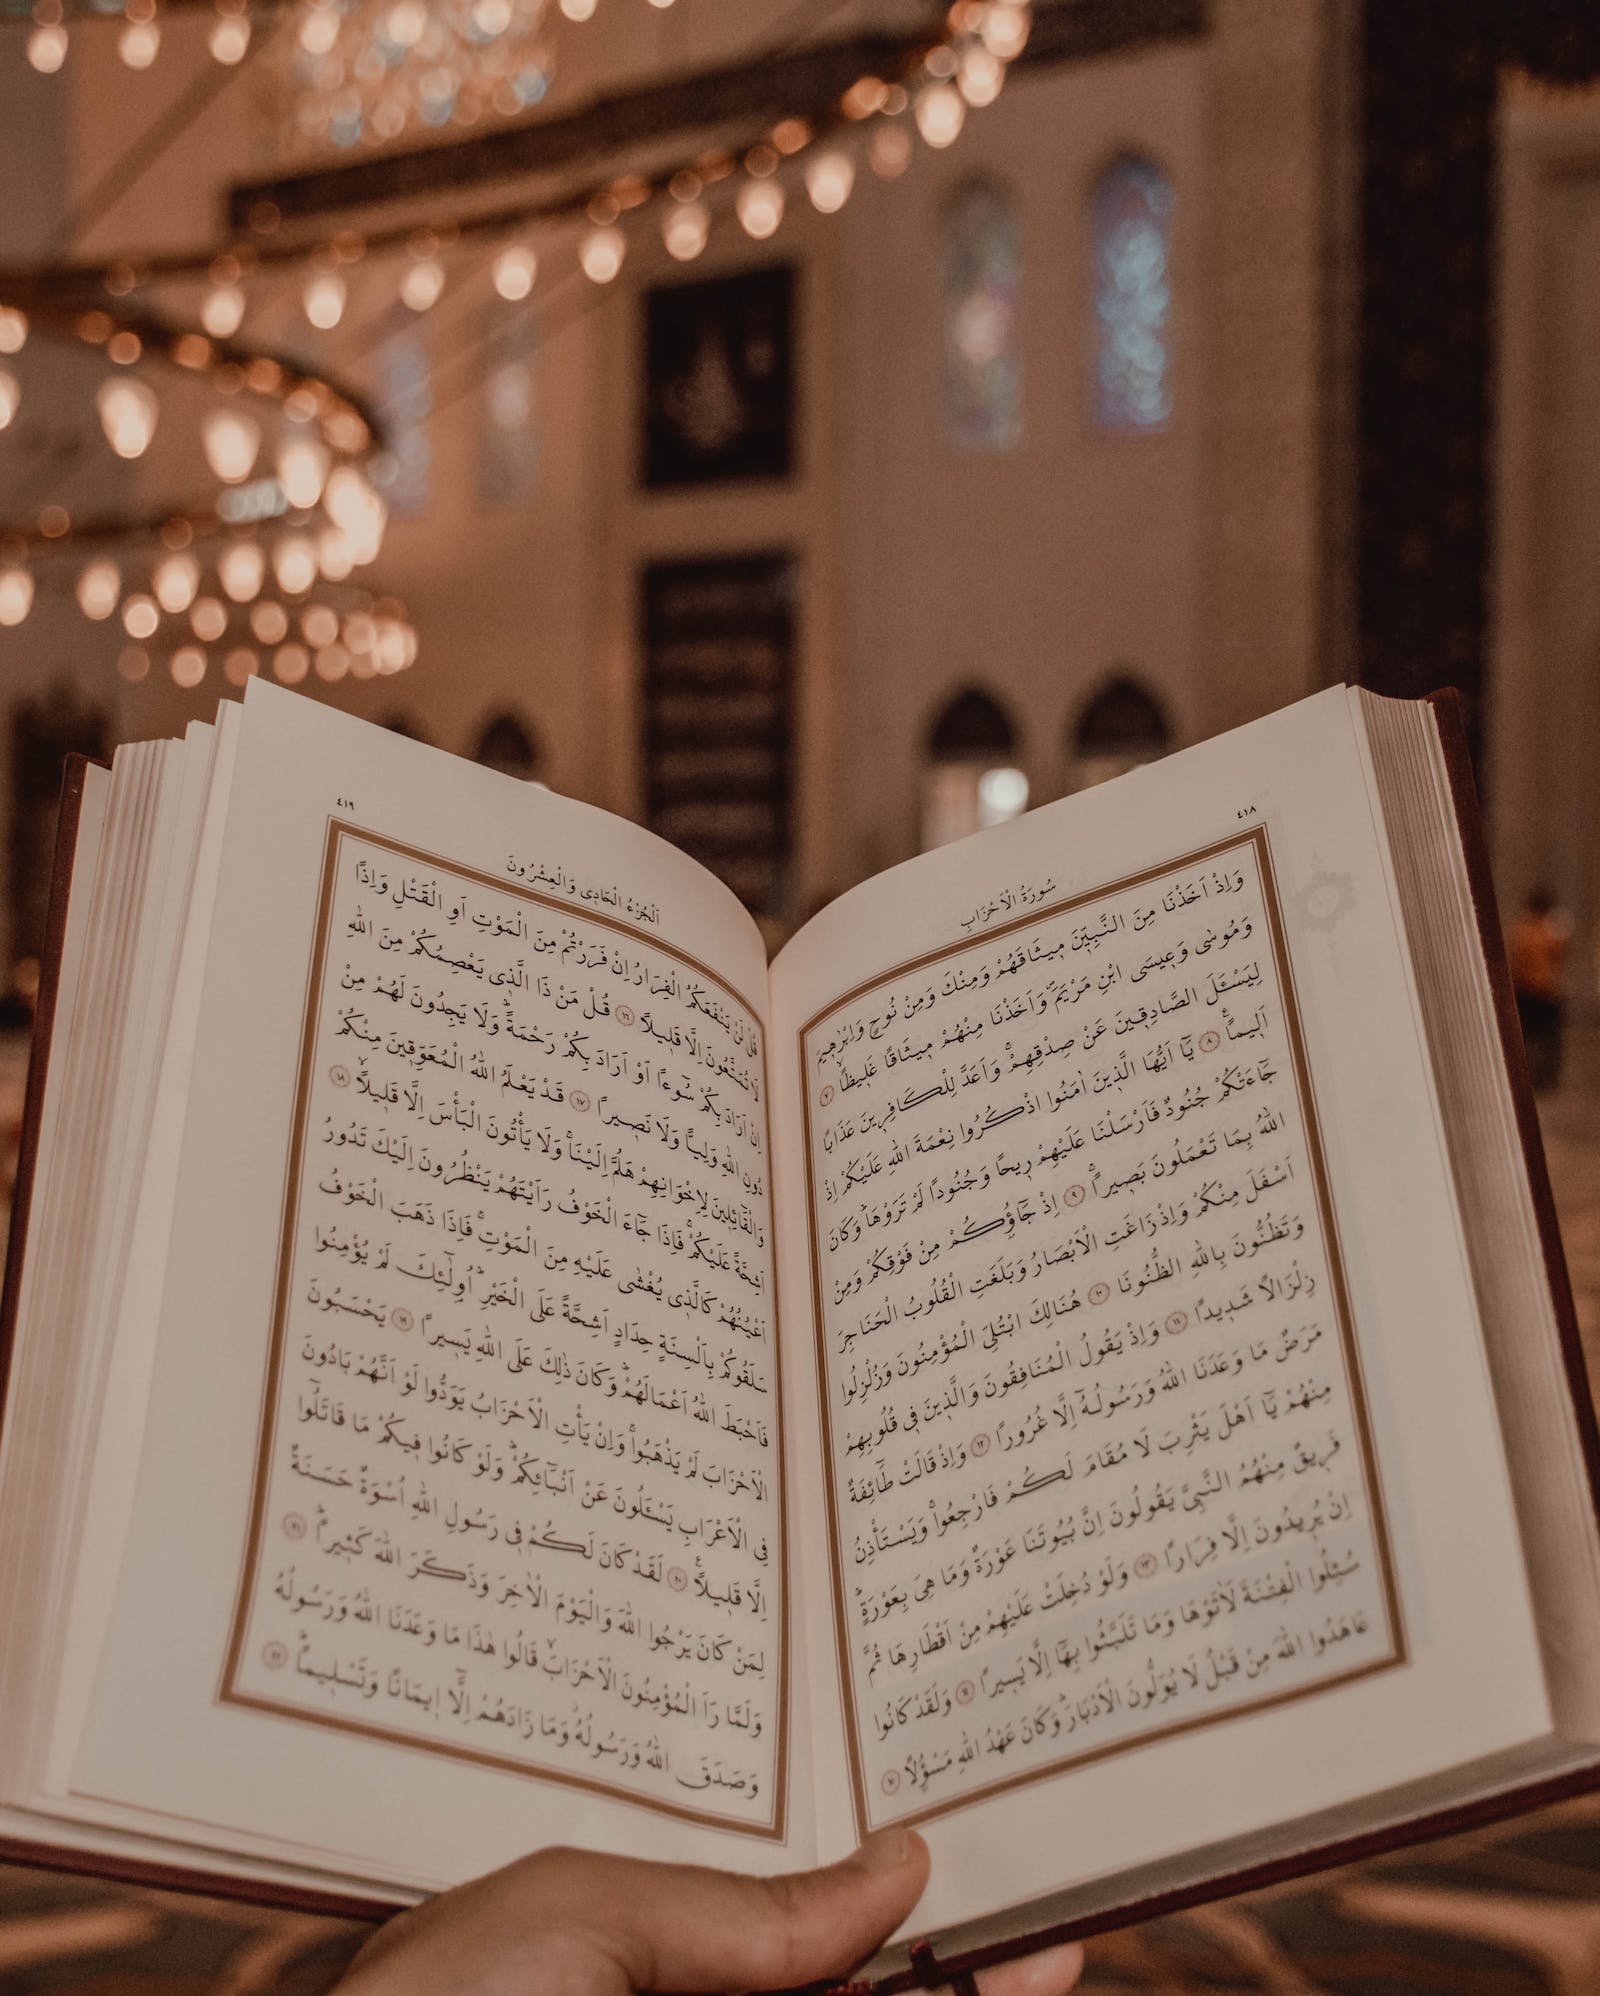 ٤١٨
سُورَةُ الْاَحْزَابِ
وَاِذْ اَخَذْنَا مِنَ النَّبِيّٖنَ مٖيثَاقَهُمْ وَمِنْكَ وَمِنْ نُوحٍ وَاِبْرٰهٖيمَ
وَمُوسٰى وَعٖيسَى ابْنِ مَرْيَمَۖ وَاَخَذْنَا مِنْهُمْ مٖيثَاقًا غَلٖيظًاۙ ٧
لِيَسْـَٔلَ الصَّادِقٖينَ عَنْ صِدْقِهِمْۚ وَاَعَدَّ لِلْكَافِرٖينَ عَذَابًا
اَلٖيمًاࣖ ٨ يَٓا اَيُّهَا الَّذٖينَ اٰمَنُوا اذْكُرُوا نِعْمَةَ اللّٰهِ عَلَيْكُمْ اِذْ
جَٓاءَتْكُمْ جُنُودٌ فَاَرْسَلْنَا عَلَيْهِمْ رٖيحًا وَجُنُودًا لَمْ تَرَوْهَاؕ وَكَانَ
اللّٰهُ بِمَا تَعْمَلُونَ بَصٖيرًاۚ ٩ اِذْ جَٓاؤُ۫كُمْ مِنْ فَوْقِكُمْ وَمِنْ
اَسْفَلَ مِنْكُمْ وَاِذْ زَاغَتِ الْاَبْصَارُ وَبَلَغَتِ الْقُلُوبُ الْحَنَاجِرَ
وَتَظُنُّونَ بِاللّٰهِ الظُّنُونَا ١٠ هُنَالِكَ ابْتُلِيَ الْمُؤْمِنُونَ وَزُلْزِلُوا
زِلْزَالًا شَدٖيدًا ١١ وَاِذْ يَقُولُ الْمُنَافِقُونَ وَالَّذٖينَ فٖي قُلُوبِهِمْ
مَرَضٌ مَا وَعَدَنَا اللّٰهُ وَرَسُولُهُٓ اِلَّا غُرُورًا ١٢ وَاِذْ قَالَتْ طَٓائِفَةٌ
مِنْهُمْ يَٓا اَهْلَ يَثْرِبَ لَا مُقَامَ لَكُمْ فَارْجِعُواۚ وَيَسْتَأْذِنُ
فَرٖيقٌ مِنْهُمُ النَّبِيَّ يَقُولُونَ اِنَّ بُيُوتَنَا عَوْرَةٌ وَمَا هِيَ بِعَوْرَةٍۚ
اِنْ يُرٖيدُونَ اِلَّا فِرَارًا ١٣ وَلَوْ دُخِلَتْ عَلَيْهِمْ مِنْ اَقْطَارِهَا ثُمَّ
سُئِلُوا الْفِتْنَةَ لَاٰتَوْهَا وَمَا تَلَبَّثُوا بِهَٓا اِلَّا يَسٖيرًا ١٤ وَلَقَدْ كَانُوا
عَاهَدُوا اللّٰهَ مِنْ قَبْلُ لَا يُوَلُّونَ الْاَدْبَارَؕ وَكَانَ عَهْدُ اللّٰهِ مَسْؤُ۫لًا ١٥
٤١٩
اَلْجُزْءُ الْحَادٖي وَالْعِشْرُونَ
قُلْ لَنْ يَنْفَعَكُمُ الْفِرَارُ اِنْ فَرَرْتُمْ مِنَ الْمَوْتِ اَوِ الْقَتْلِ وَاِذًا
لَا تُمَتَّعُونَ اِلَّا قَلٖيلًا ١٦ قُلْ مَنْ ذَا الَّذٖي يَعْصِمُكُمْ مِنَ اللّٰهِ
اِنْ اَرَادَ بِكُمْ سُٓوءًا اَوْ اَرَادَ بِكُمْ رَحْمَةًؕ وَلَا يَجِدُونَ لَهُمْ مِنْ
دُونِ اللّٰهِ وَلِيًّا وَلَا نَصٖيرًا ١٧ قَدْ يَعْلَمُ اللّٰهُ الْمُعَوِّقٖينَ مِنْكُمْ
وَالْقَٓائِلٖينَ لِاِخْوَانِهِمْ هَلُمَّ اِلَيْنَاۚ وَلَا يَأْتُونَ الْبَأْسَ اِلَّا قَلٖيلًاۙ ١٨
اَشِحَّةً عَلَيْكُمْۚ فَاِذَا جَٓاءَ الْخَوْفُ رَاَيْتَهُمْ يَنْظُرُونَ اِلَيْكَ تَدُورُ
اَعْيُنُهُمْ كَالَّذٖي يُغْشٰى عَلَيْهِ مِنَ الْمَوْتِۚ فَاِذَا ذَهَبَ الْخَوْفُ
سَلَقُوكُمْ بِاَلْسِنَةٍ حِدَادٍ اَشِحَّةً عَلَى الْخَيْرِؕ اُو۬لٰٓئِكَ لَمْ يُؤْمِنُوا
فَاَحْبَطَ اللّٰهُ اَعْمَالَهُمْؕ وَكَانَ ذٰلِكَ عَلَى اللّٰهِ يَسٖيرًا ١٩ يَحْسَبُونَ
الْاَحْزَابَ لَمْ يَذْهَبُواۚ وَاِنْ يَأْتِ الْاَحْزَابُ يَوَدُّوا لَوْ اَنَّهُمْ بَادُونَ
فِي الْاَعْرَابِ يَسْـَٔلُونَ عَنْ اَنْبَٓائِكُمْؕ وَلَوْ كَانُوا فٖيكُمْ مَا قَاتَلُٓوا
اِلَّا قَلٖيلًاࣖ ٢٠ لَقَدْ كَانَ لَكُمْ فٖي رَسُولِ اللّٰهِ اُسْوَةٌ حَسَنَةٌ
لِمَنْ كَانَ يَرْجُوا اللّٰهَ وَالْيَوْمَ الْاٰخِرَ وَذَكَرَ اللّٰهَ كَثٖيرًاؕ ٢١
وَلَمَّا رَاَ الْمُؤْمِنُونَ الْاَحْزَابَۙ قَالُوا هٰذَا مَا وَعَدَنَا اللّٰهُ وَرَسُولُهُ
وَصَدَقَ اللّٰهُ وَرَسُولُهُؗ وَمَا زَادَهُمْ اِلَّٓا اٖيمَانًا وَتَسْلٖيمًاؕ ٢٢